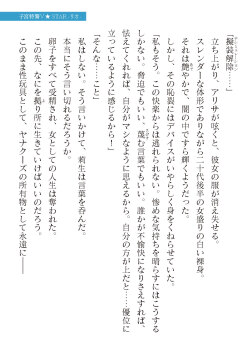 子宮特捜☆STAR.リオ
「擬装解除……」
立ち上がり、アリサが呟くと、彼女の服が消え失せる。
スレンダーな体形でありながら二十代後半の女盛りの白い裸身。
それは艶やかで、闇の中ですら輝くようだった。
しかし、その恥裂にはデバイスがいやらしく身をくねらせていた。
「私も、この快楽からは逃れられない。惨めな気持ちを晴らすにはこうする
しかない。脅迫でもいい。蔑む言葉でもいい。誰かが不愉快になりさえすれば、
怯えてくれれば、自分がマシなように思えるから。自分の方が上だと……優位に
立っているように感じられるから」
「そんな……こと」
私はしない。そう言いかけて、莉生は言葉を呑んだ。
本当にそう言い切れるだろうか。
卵子をすべて受精され、女としての人生は奪われた。
この先、なにを拠りに生きていけばいいのだろう。
このまま性玩具として、ヤナクーズの所有物として永遠に――